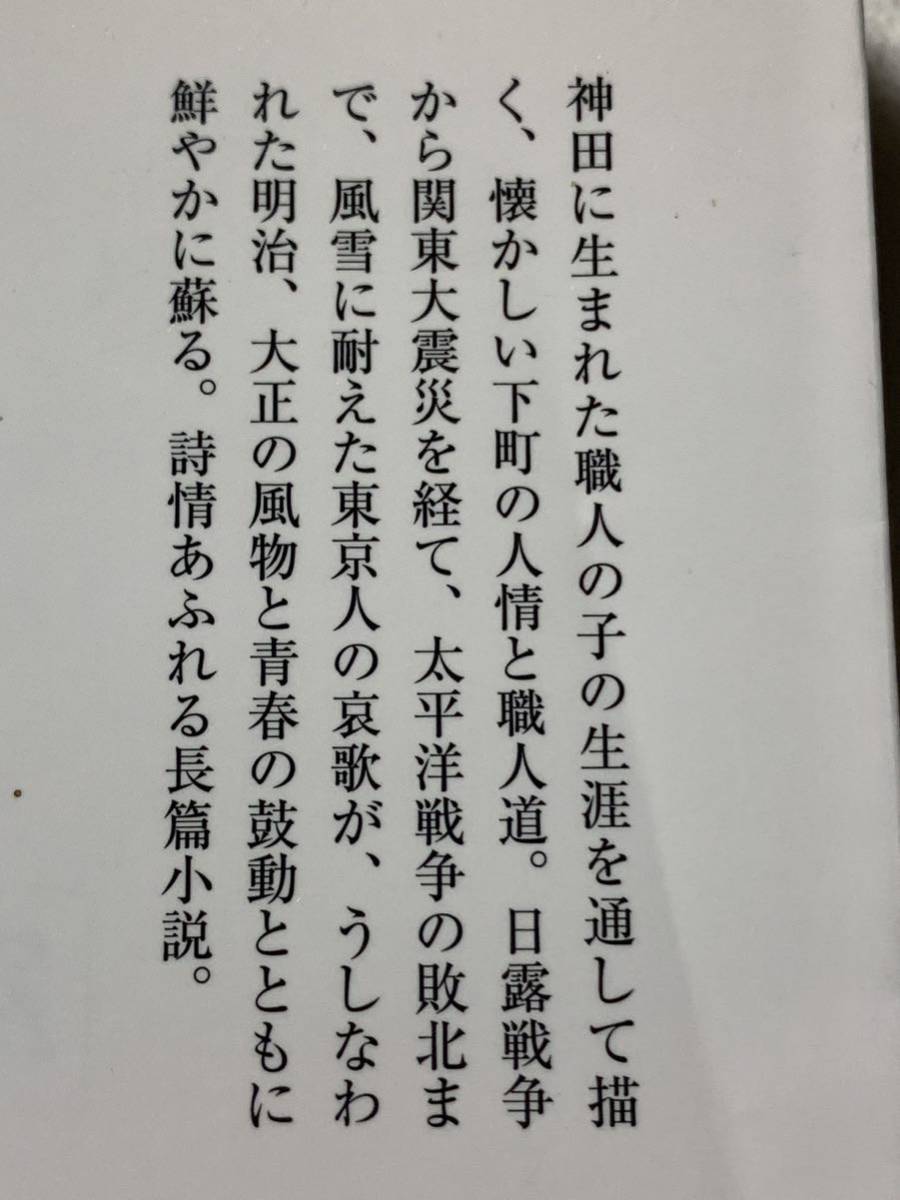 神田に生まれた職人の子の生涯を通して描
く、懐かしい下町の人情と職人道。日露戦争
から関東大震災を経て、太平洋戦争の敗北ま
で、風雪に耐えた東京人の哀歌が、うしなわ
れた明治、大正の風物と青春の鼓動とともに
鮮やかに蘇る。詩情あふれる長篇小説。